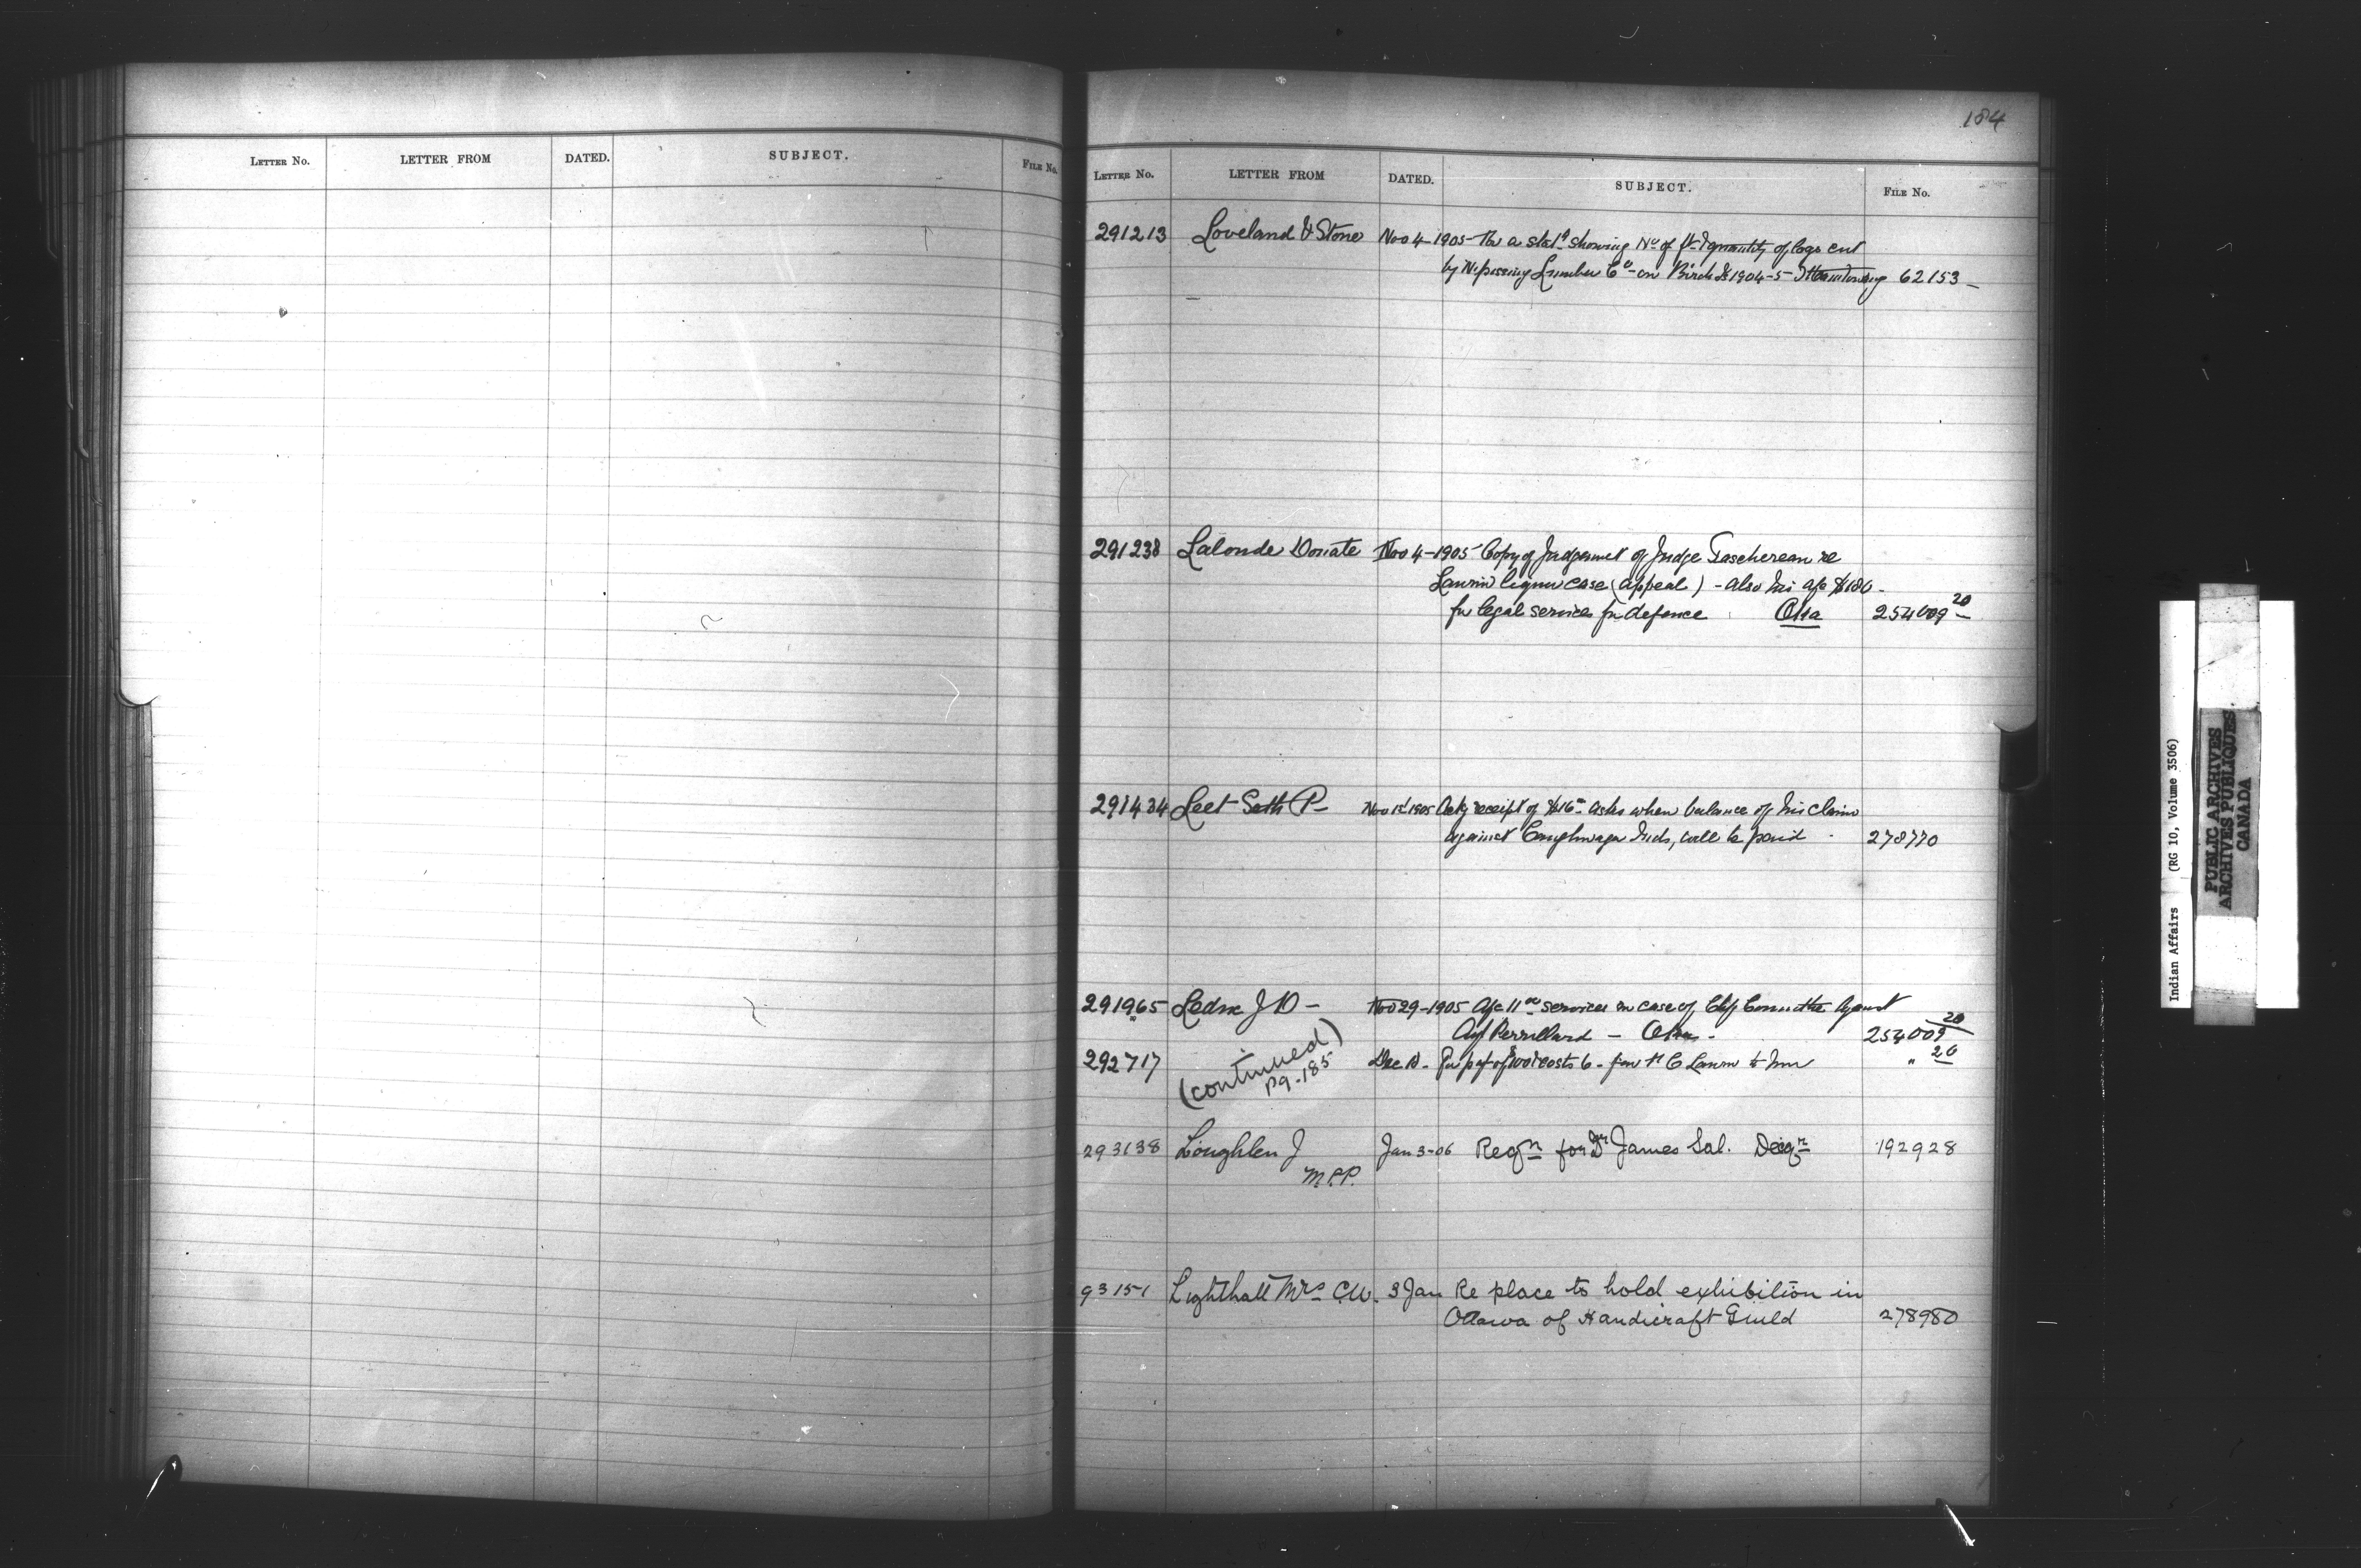 LETTER No. LETTER FROM DATED. SUBJECT. FILE No.
184
LETTER No. LETTER FROM DATED. SUBJECT. FILE No.
291213 Loveland & Stone Nov 4-1905- a stat showing No of quantity of logs cut
by Nipissing Lumber Co on Birch Is 1904-5 62153
291238 Lalonde Donate Nov 4-1905 Copy of Judgement of Judge Taschereau re
Lauvin liquor case (appeal) - also his a/c $180-
for legal services for defence Oka 254009 20
291434 Leet Seth P- Nov 1905 receipt of $16 asks when balance of his claim
against Caughnawaga Inds, will be paid 278770
291965 J D - Nov 29-1905 a/c 11 services in case of against
- Oka - 254009 20
292717 Dec costs 6- to him " 20
(continued)
pg-185
293138 Loughlen J Jan 3-06 Reqn for Dr James Sal. 192928
M.P.P.
93151 Lighthall Mrs C.W. 3 Jan Re place to hold exhibition in
Ottawa of Handicraft Guild 278980
Indian Affairs (RG 10, Volume 3506)
PUBLIC ARCHIVES
ARCHIVES PUBLIQUES
CANADA